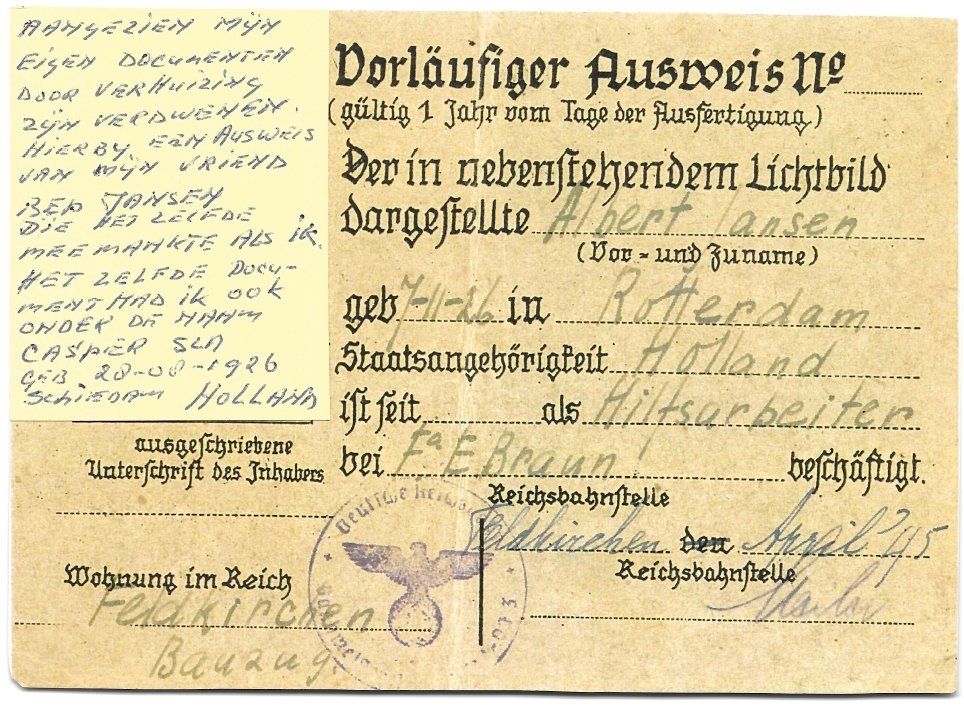 AANGEZIEN MYN
EIGEN DOCUMENTEN
DOOR VERHUIZING
ZYN VERDWENEN.
HIERBY EEN AUSWEIS
VAN MYN VRIEND
BEP JANSEN
DIE HET ZELFDE
MEE MAAKTE ALS IK.
HET ZELFDE DOCU-
MENT HAD IK OOK
ONDER DE NAAM
CASPER SLA
GEB 28-08-1926
SCHIEDAM HOLLAND
Vorläufiger Ausweis No
(gültig 1 Jahr vom Tage der Ausfertigung)
Der in nebenstehendem Lichtbild
dargestellte Albert Jansen
(Vor- und Zuname)
geb 7-11-26 in Rotterdam
Staatsangehörigkeit Holland
ist seit als Hilfsarbeiter
bei Fa E. Braun beschäftigt.
ausgeschriebene
Unterschrift des Inhabers
Reichsbahnstelle
Feldkirchen den April 45
Reichsbahnstelle
Wohnung im Reich
Feldkirchen
Bauzug
Deutsche